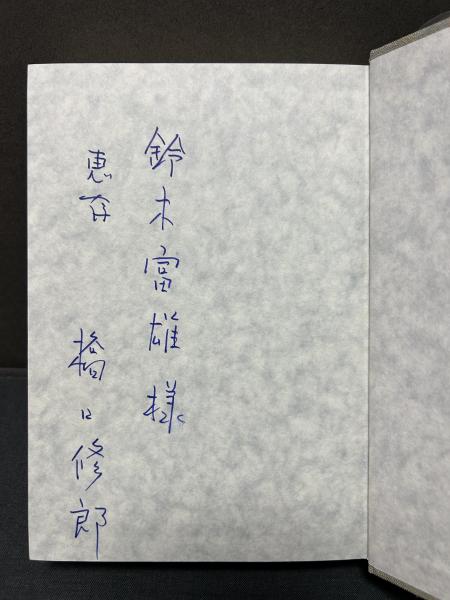 鈴木富雄様
恵存
橋口修郎